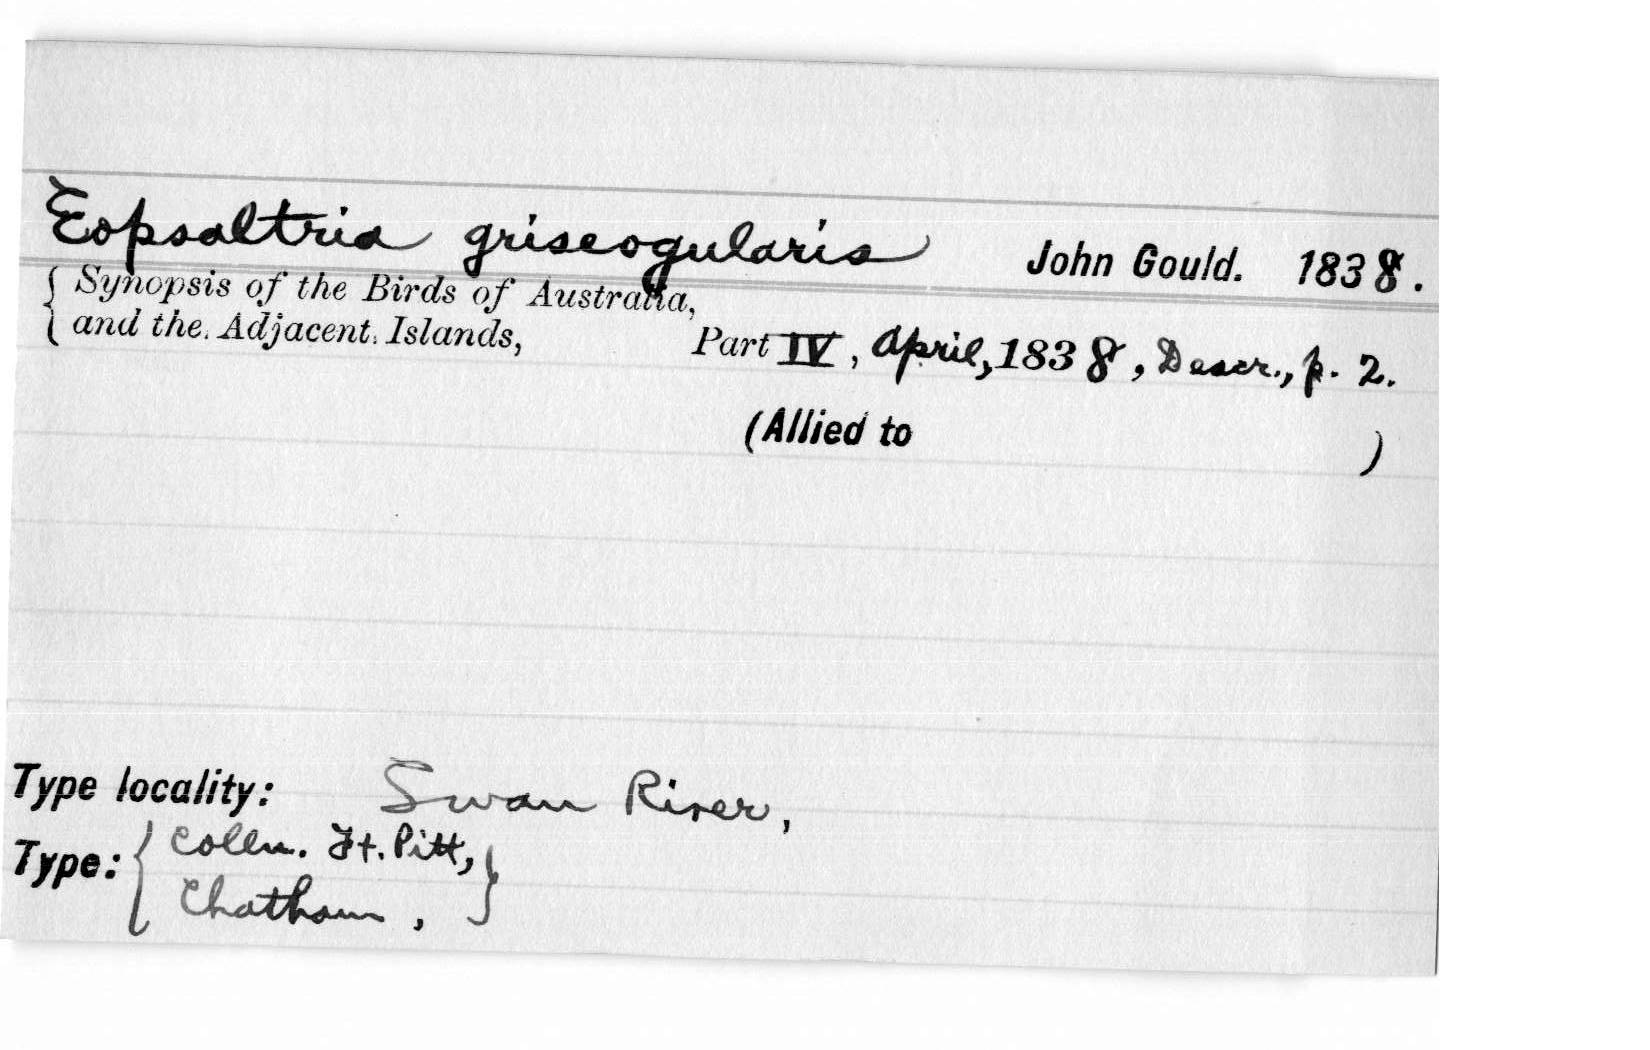 Eopsaltria griseogularis John Gould. 1838.
{ Synopsis of the Birds of Australia,
{ and the Adjacent Islands, Part IV, April, 1838, Descr., p. 2.
(Allied to )
Type locality: Swan River,
Type: { Colln. Ft. Pitt, }
Chatham,